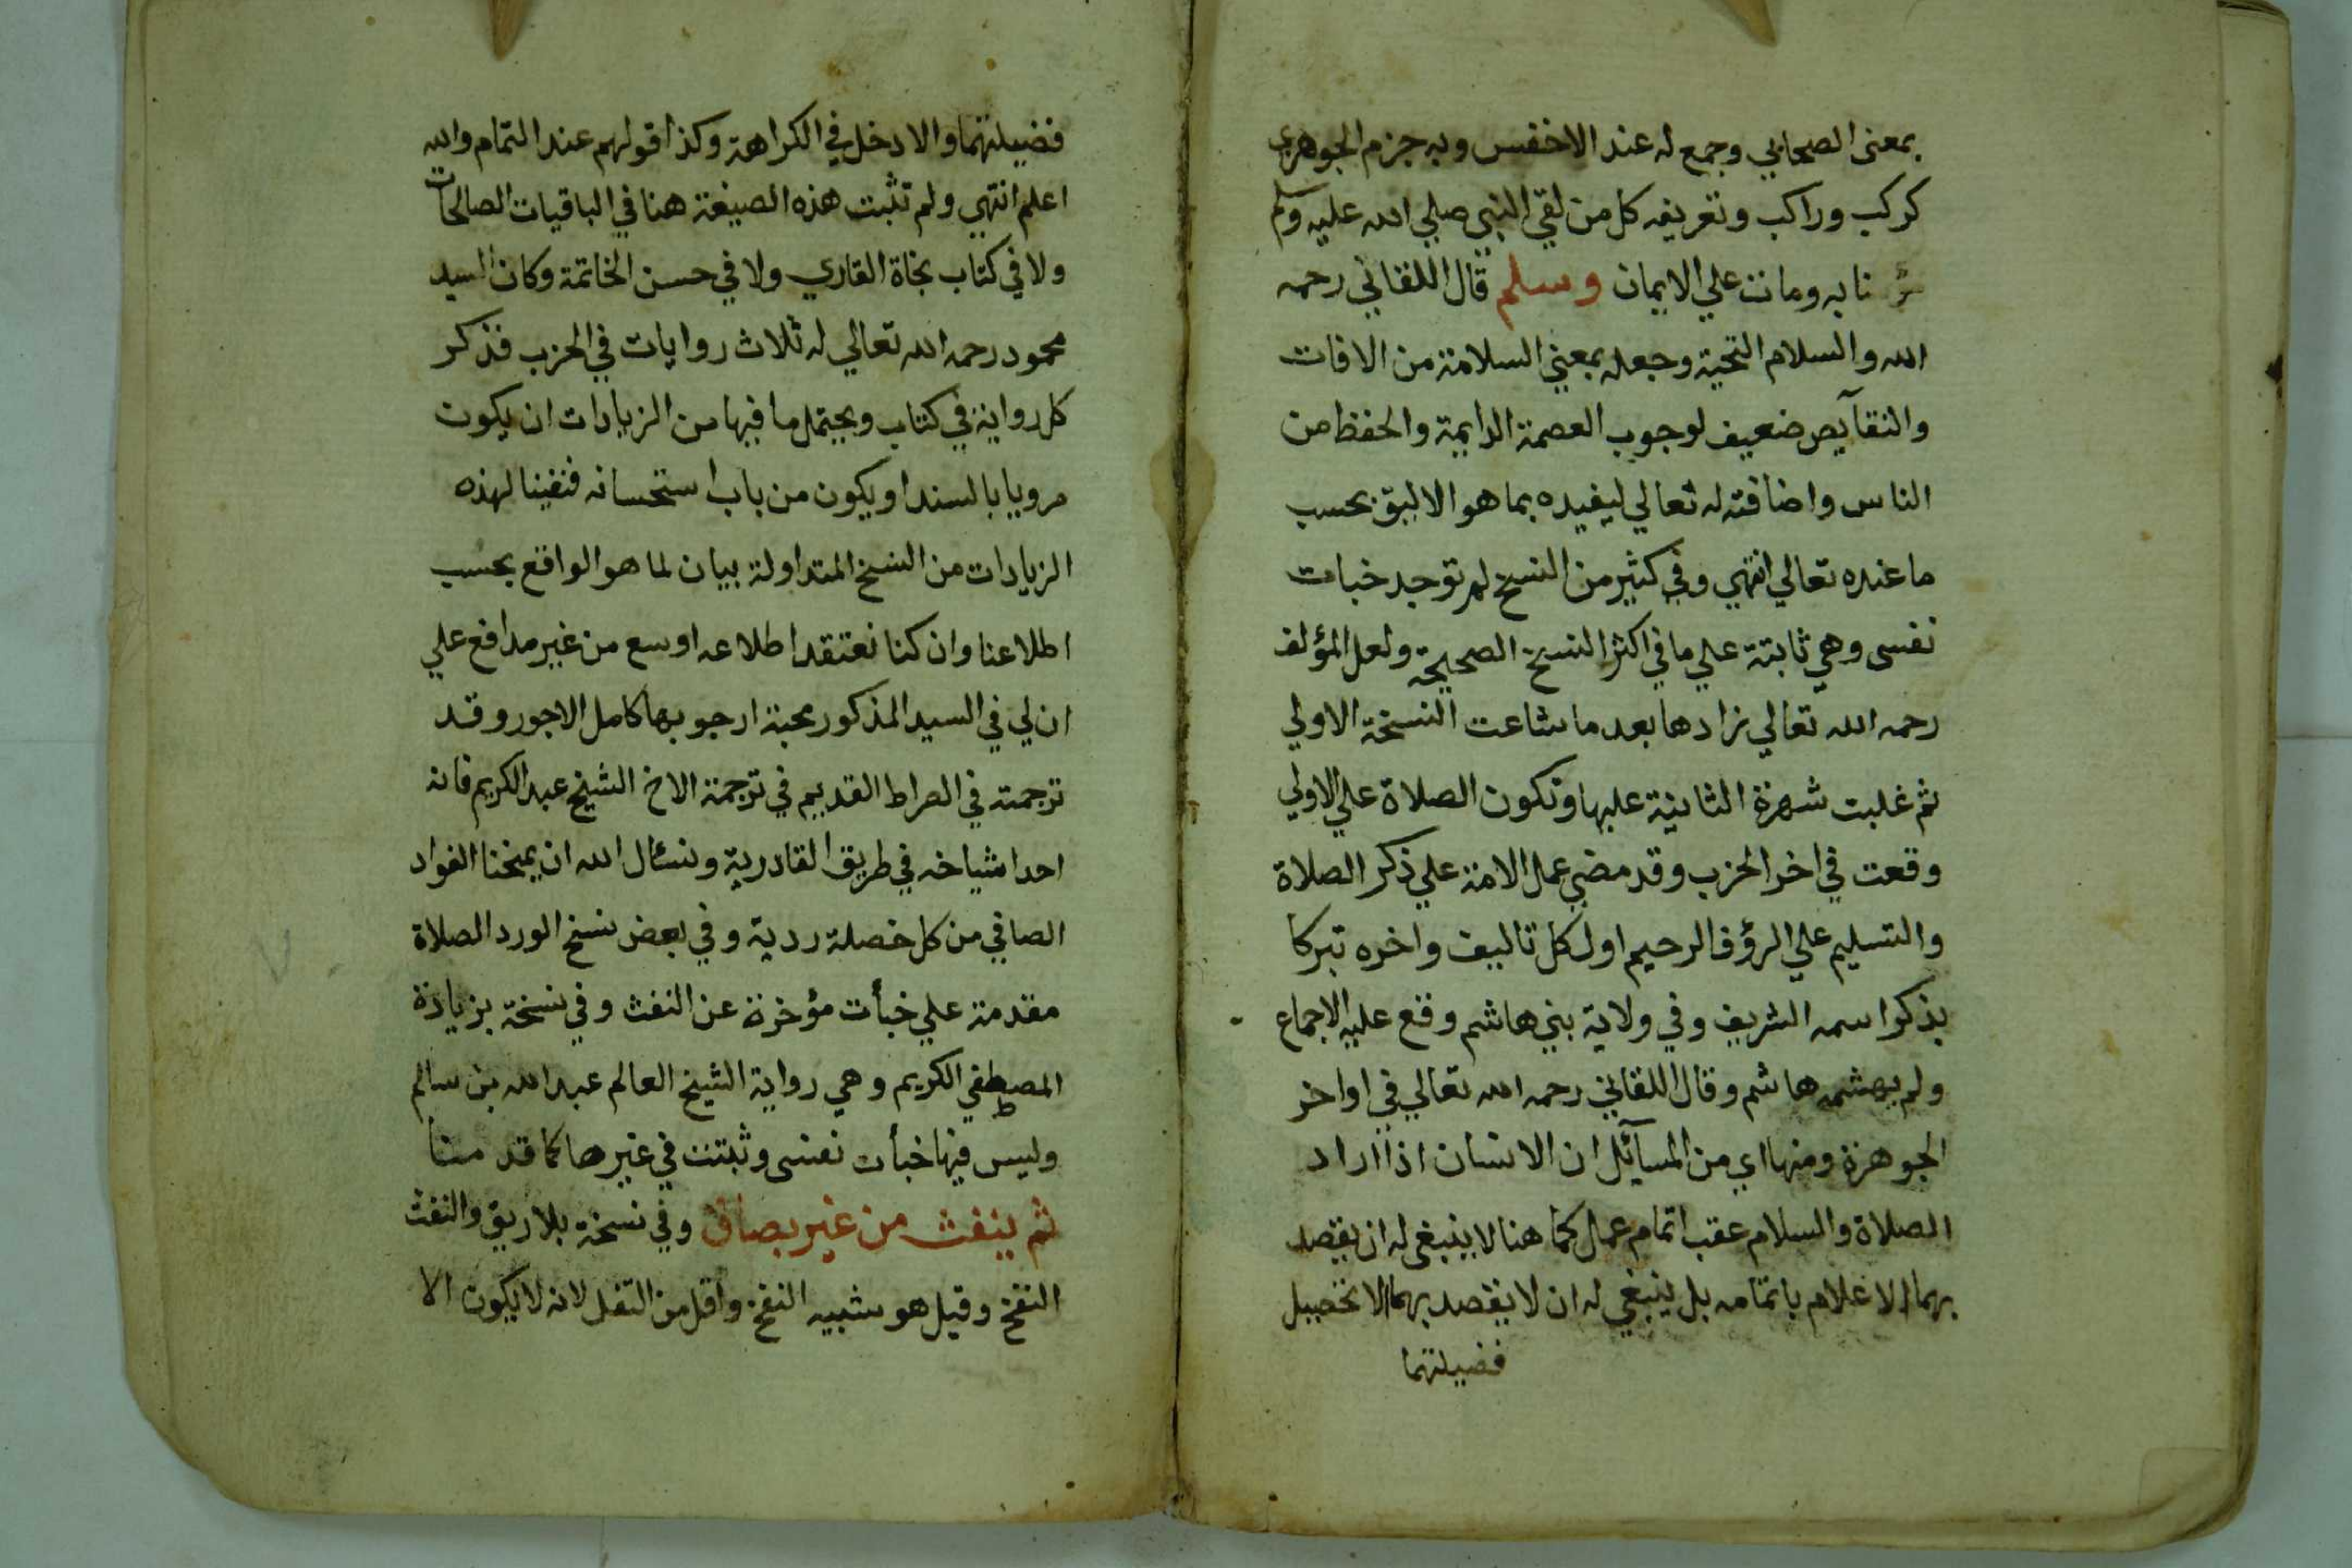 بمعنى الصحابي وجمع له عند الاخفس وبه جزم الجوهري
كركب وراكب وتعريفه كل من لقي النبي صلي الله عليه وسلم
نا به ومات علي الايمان وسلم قال اللقاني رحمه
الله والسلام التحية وجعله بمعني السلامة من الافات
والنقآيص ضعيف لوجوب العصمة الدايمة والحفظ من
الناس واضافته له تعالي ليفيده بما هو الاليق بحسب
ما عنده تعالي انتهي وفي كثير من النسخ لم توجد خبات
نفسى وهي ثابتة علي ما في اكثر النسخ الصحيحة ولعل المؤلف
رحمه الله تعالي زادها بعد ما شاعت النسخة الاولي
ثم غلبت شهرة الثانية عليها وتكون الصلاة علي الاولي
وقعت في اخر الحزب وقد مضي عمل الامة علي ذكر الصلاة
والتسليم علي الرؤف الرحيم اول كل تاليف واخره تبركا
بذكر اسمه الشريف وفي ولاية بني هاشم وقع عليه الاجماع
ولم يهشمه هاشم وقال اللقاني رحمه الله تعالي في اواخر
الجوهرة ومنها اي من المسآئل ان الانسان اذا اراد
الصلاة والسلام عقب اتمام عمل كما هنا لا ينبغى له ان يقصد
بهما الاعلام باتمامه بل ينبغي له ان لا يقصد بهما الا تحصيل
فضيلتهما
فضيلتهما والا دخل في الكراهة وكذا قولهم عند التمام والله
اعلم انتهي ولم تثبت هذه الصيغة هنا في الباقيات الصالحات
ولا في كتاب نجاة القاري ولا في حسن الخاتمة وكان السيد
محمود رحمه الله تعالي له ثلاث روايات في الحزب فذكر
كل رواية في كتاب ويحتمل ما فيها من الزيادات ان يكون
مرويا بالسند او يكون من باب استحسانه فنفينا لهذه
الزيادات من النسخ المتداولة بيان لما هو الواقع بحسب
اطلاعنا وان كنا نعتقد اطلاعه اوسع من غير مدافع علي
ان لي في السيد المذكور محبة ارجو بها كامل الاجور وقد
ترجمته في الصراط القديم في ترجمة الاخ الشيخ عبد الكريم فانه
احد اشياخه في طريق القادرية ونسئال الله ان يمنحنا الفواد
الصافي من كل خصلة ردية وفي بعض نسخ الورد الصلاة
مقدمة علي خبأت مؤخرة عن النفث وفي نسخة بزيادة
المصطفي الكريم وهي رواية الشيخ العالم عبد الله بن سالم
وليس فيها خبأت نفسى وثبتت في غيرها كما قد منا
ثم ينفث من غير بصاق وفي نسخة بلا ريق والنفث
النفخ وقيل هو شبيه النفخ واقل من التفل لانه لا يكون الا